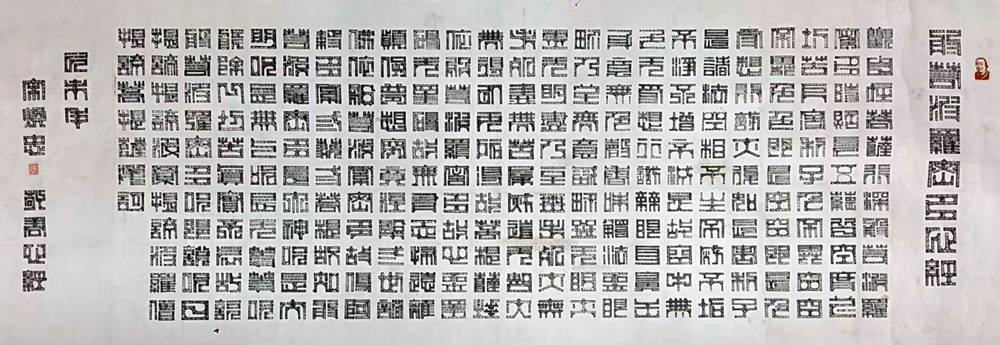 般若波羅密多心經
觀自在菩薩行深般若波羅
蜜多時照見五蘊皆空度一
切苦厄舍利子色不異空空
不異色色即是空空即是色
受想行識亦復如是舍利子
是諸法空相不生不滅不垢
不淨不增不減是故空中無
色無受想行識無眼耳鼻舌
身意無色聲香味觸法無眼
界乃至無意識界無無明亦
無無明盡乃至無老死亦無
老死盡無苦集滅道無智亦
無得以無所得故菩提薩埵
依般若波羅蜜多故心無罣
礙無罣礙故無有恐怖遠離
顛倒夢想究竟涅槃三世諸
佛依般若波羅蜜多故得阿
耨多羅三藐三菩提故知般
若波羅蜜多是大神咒是大
明咒是無上咒是無等等咒
能除一切苦真實不虛故說
般若波羅蜜多咒即說咒曰
揭諦揭諦波羅揭諦波羅僧
揭諦菩提薩婆訶
未年
敬書心經